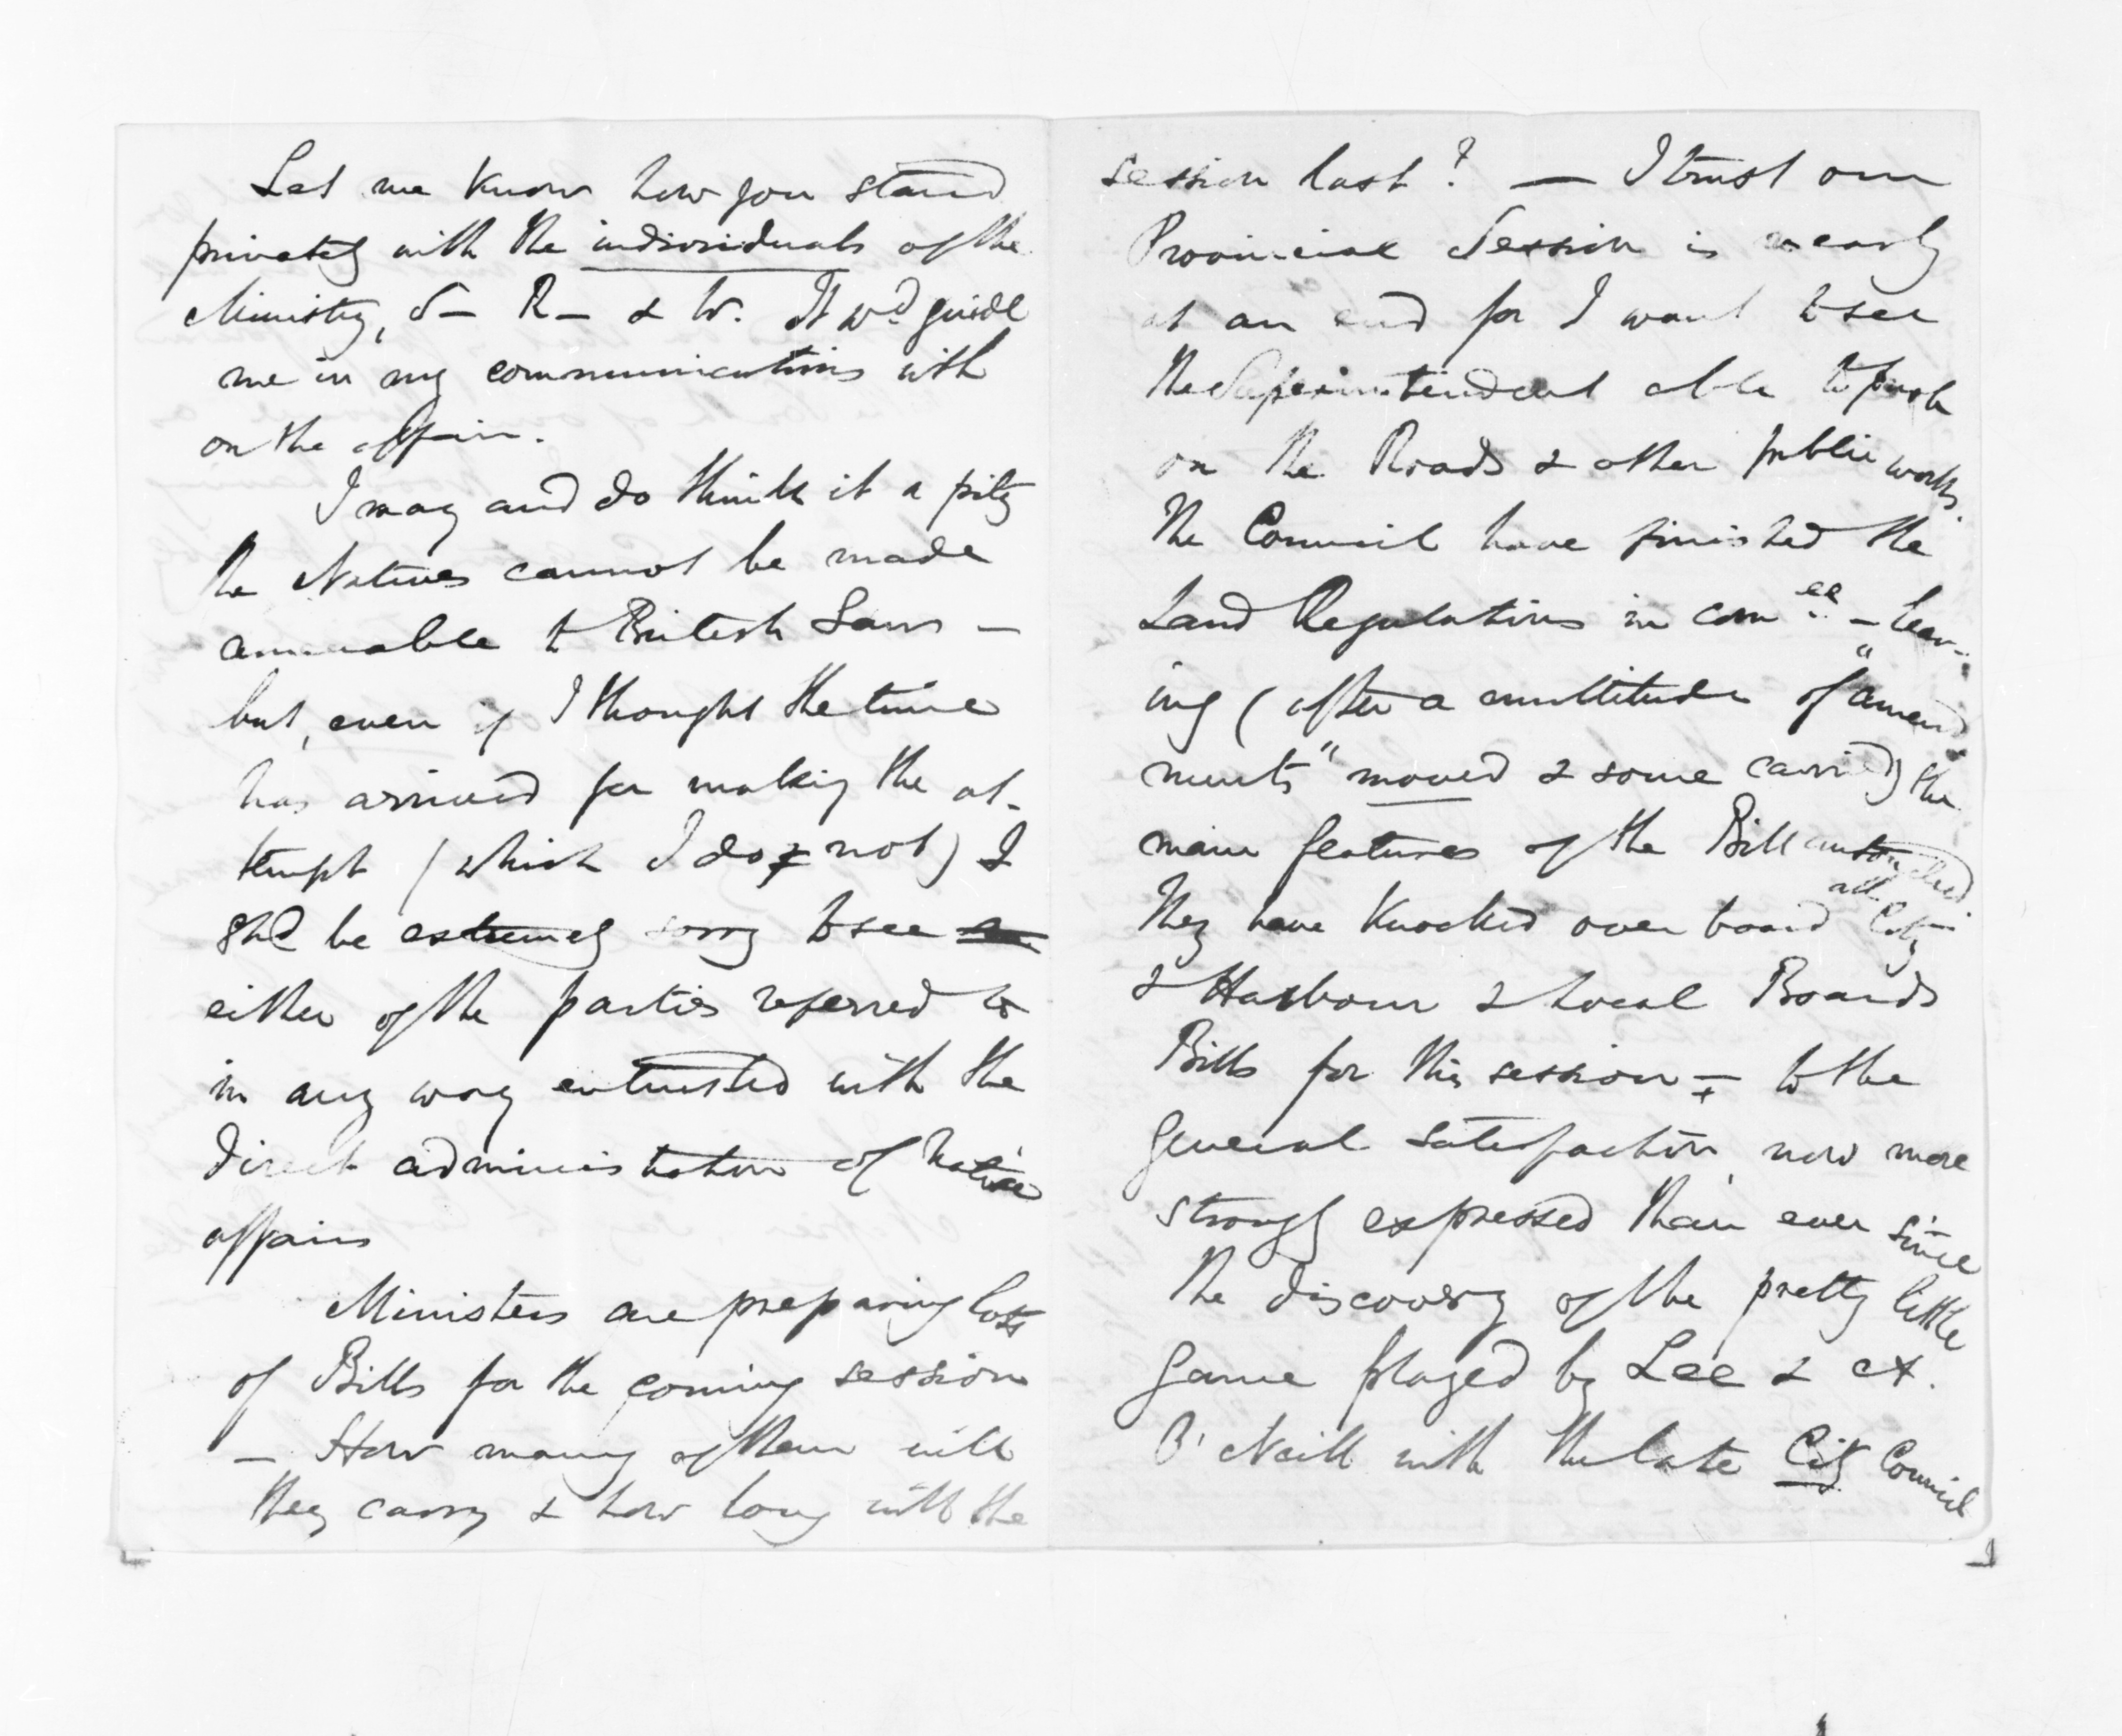 Let me know how you stand
privately with the individuals of the
Ministry, S— R— & W. It wd. guide
me in my communications with
on the affair.
I may and do think it a pity
the Natives cannot be made
amenable to British Laws —
but, even if I thought the time
has arrived for making the at-
tempt (which I do not) I
shd be extremely sorry to see
either of the parties referred to
in any way entrusted with the
direct administration of Native
affairs
Ministers are preparing lots
of Bills for the coming session
— How many of them will
they carry & how long will the
session last? — I trust our
Provincial Session is nearly
at an end for I want to see
the Superintendent able to push
on the Roads & other public works.
The Council have finished the
Land Regulations in comee. — leav-
ing (after a multitude of "amend-
ments" moved & some carried) the
main features of the Bill untouched
They have knocked over board all City
& Harbour & Local Boards
Bills for this session — to the
general satisfaction, now more
strongly expressed than ever since
the discovery of the pretty little
game played by Lee & A.
O'Neill with the late City Council